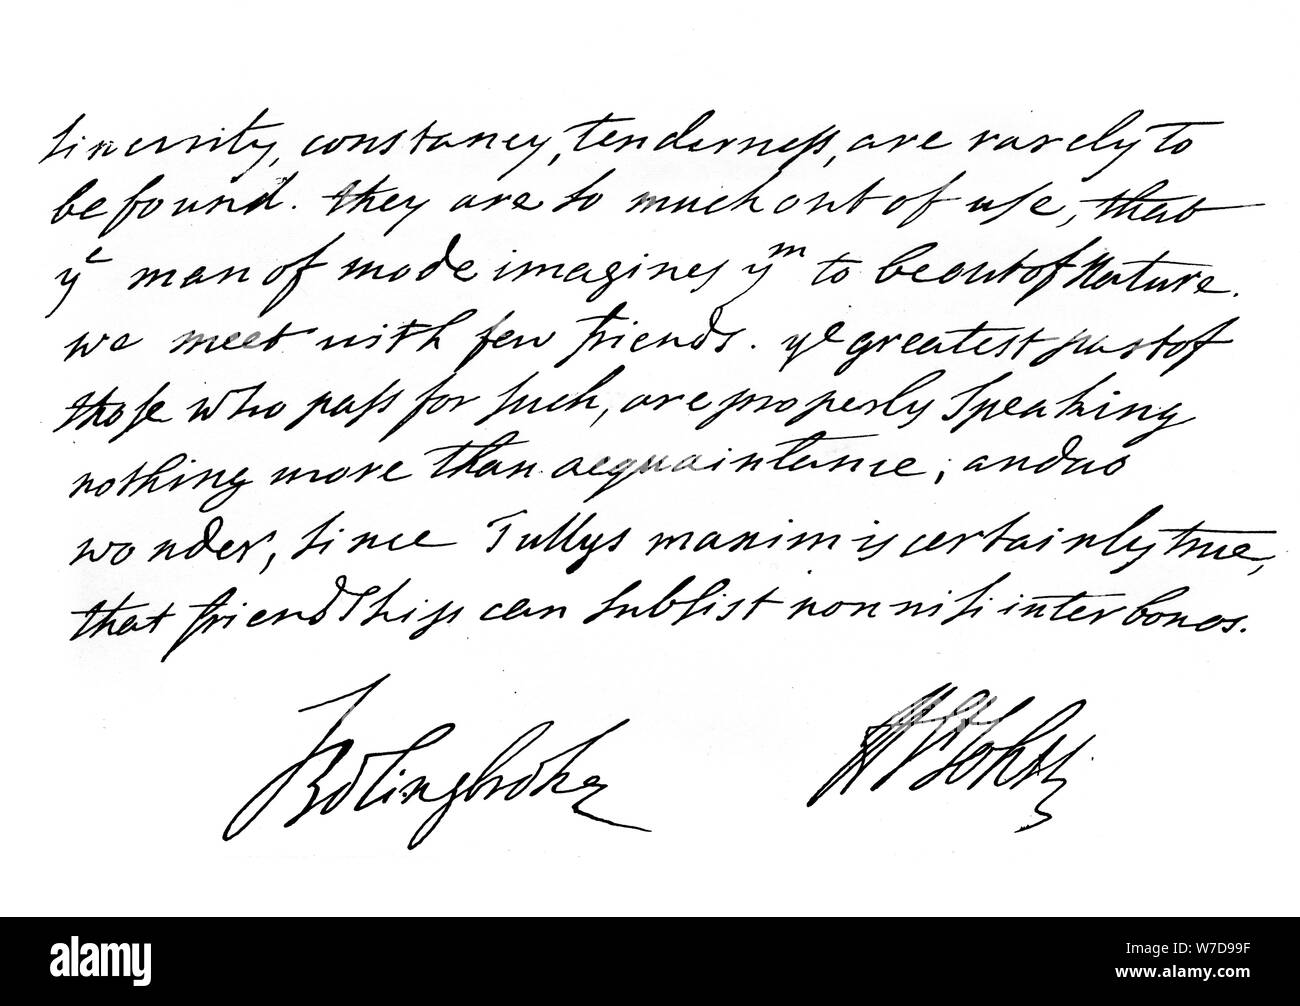 sincerity, constancy, tenderness, are rarely to
be found. they are so much out of use, that
ye man of mode imagines ym to be out of Nature.
we meet with few friends. ye greatest part of
those who pass for such, are properly speaking
nothing more than acquaintance; and no
wonder, since Tullys maxim is certainly true,
that friendships can subsist non nisi inter bonos.
Bolingbroke H St John
alamy
Image ID: W7D99F
www.alamy.com